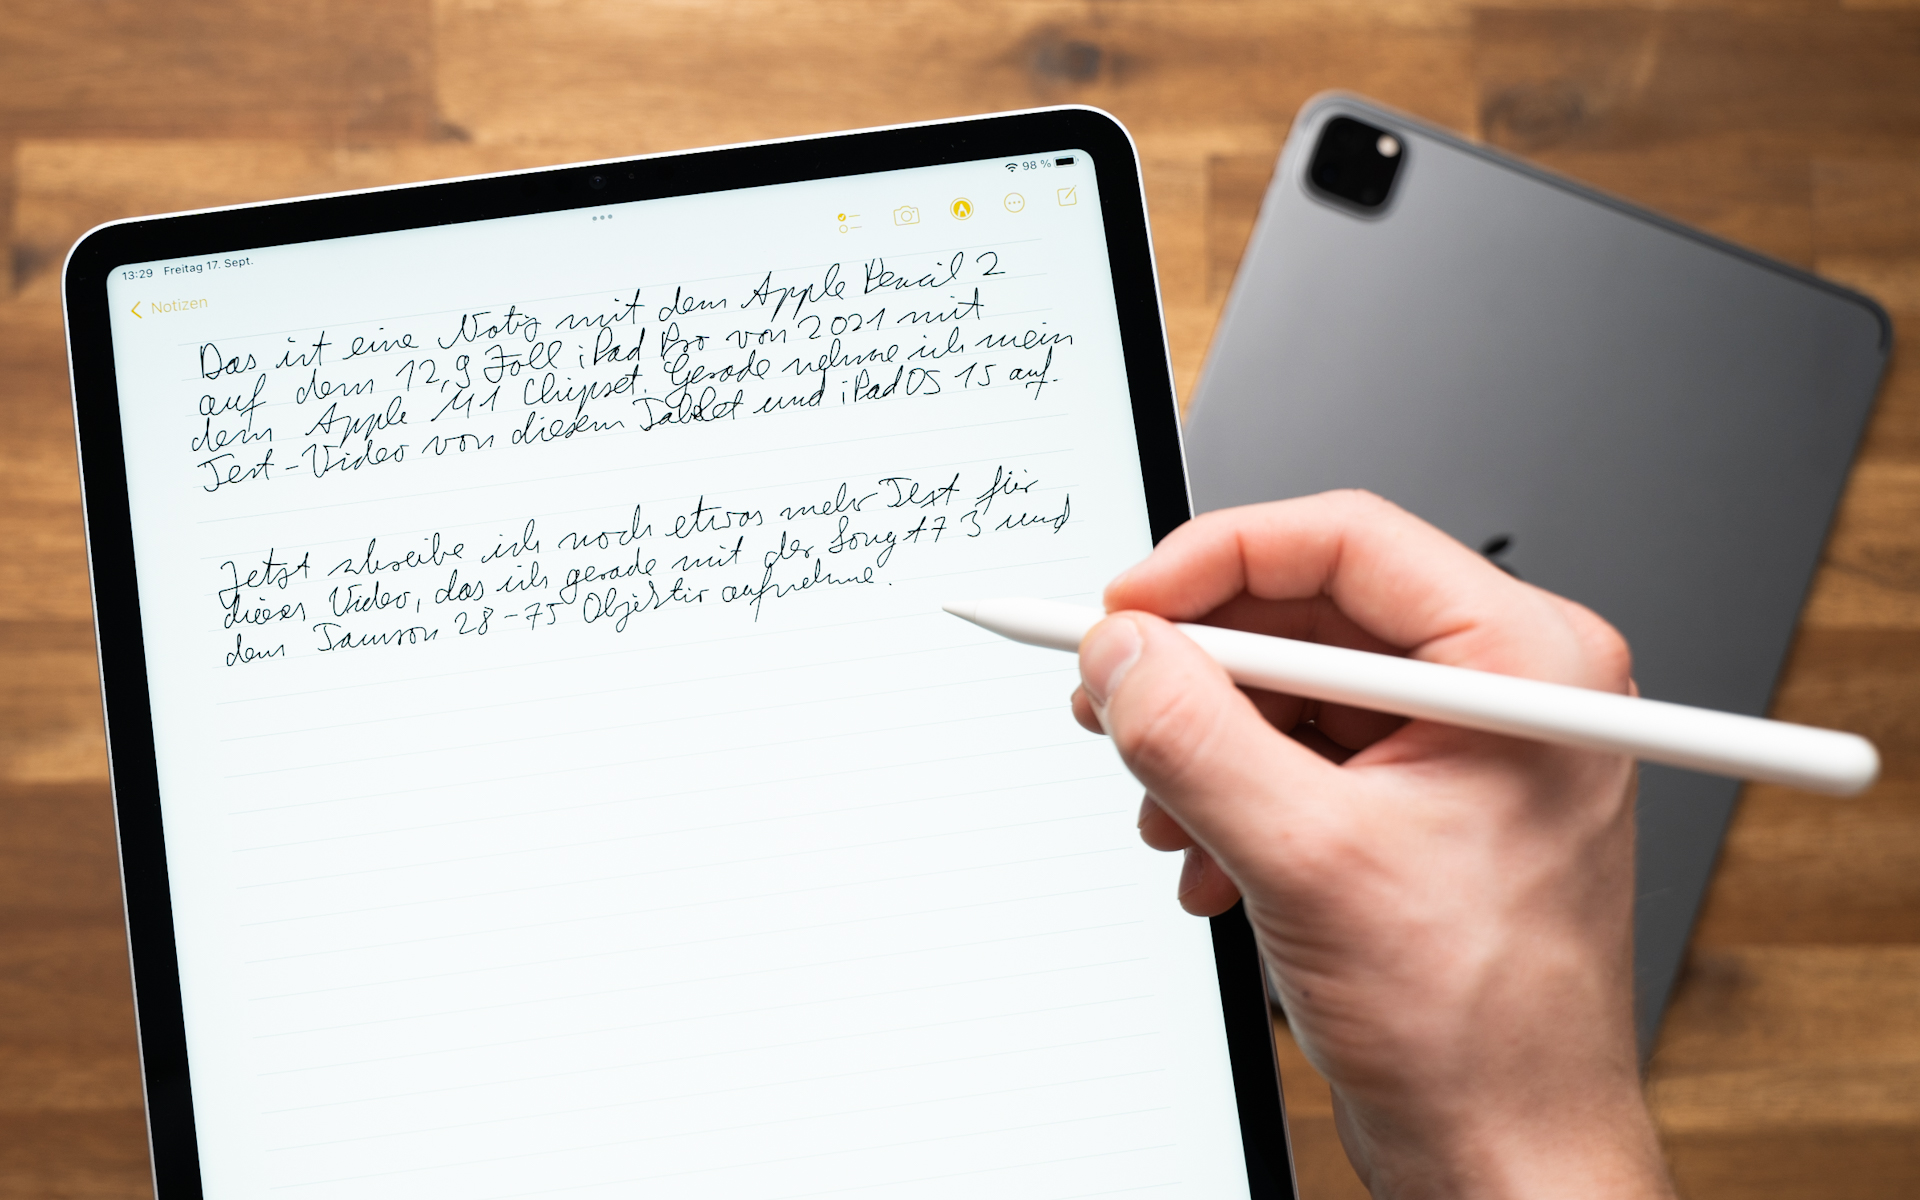 13:29 Freitag 17. Sept.
98 %
Notizen
Das ist eine Notiz mit dem Apple Pencil 2
auf dem 12,9 Zoll iPad Pro von 2021 mit
dem Apple M1 Chipset. Gerade nehme ich mein
Test-Video von diesem Tablet und iPadOS 15 auf.
Jetzt schreibe ich noch etwas mehr Text für
dieses Video, das ich gerade mit der Sony A7 3 und
dem Tamron 28-75 Objektiv aufnehme.